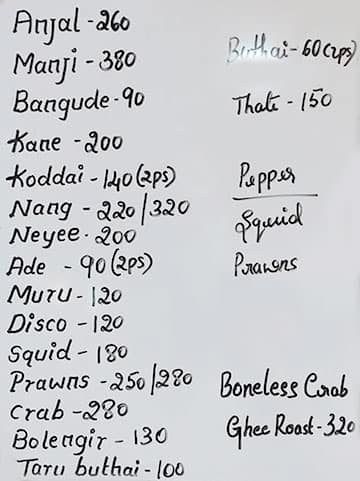 Anjal - 260
Manji - 380
Bangude - 90
Kane - 200
Koddai - 140 (2ps)
Nang - 220/320
Neyee - 200
Ade - 90 (2ps)
Muru - 120
Disco - 120
Squid - 180
Prawns - 250/280
Crab - 280
Bolengir - 130
Taru buthai - 100
Buthai - 60 (2ps)
Thate - 150
Pepper
Squid
Prawns
Boneless Crab
Ghee Roast - 320